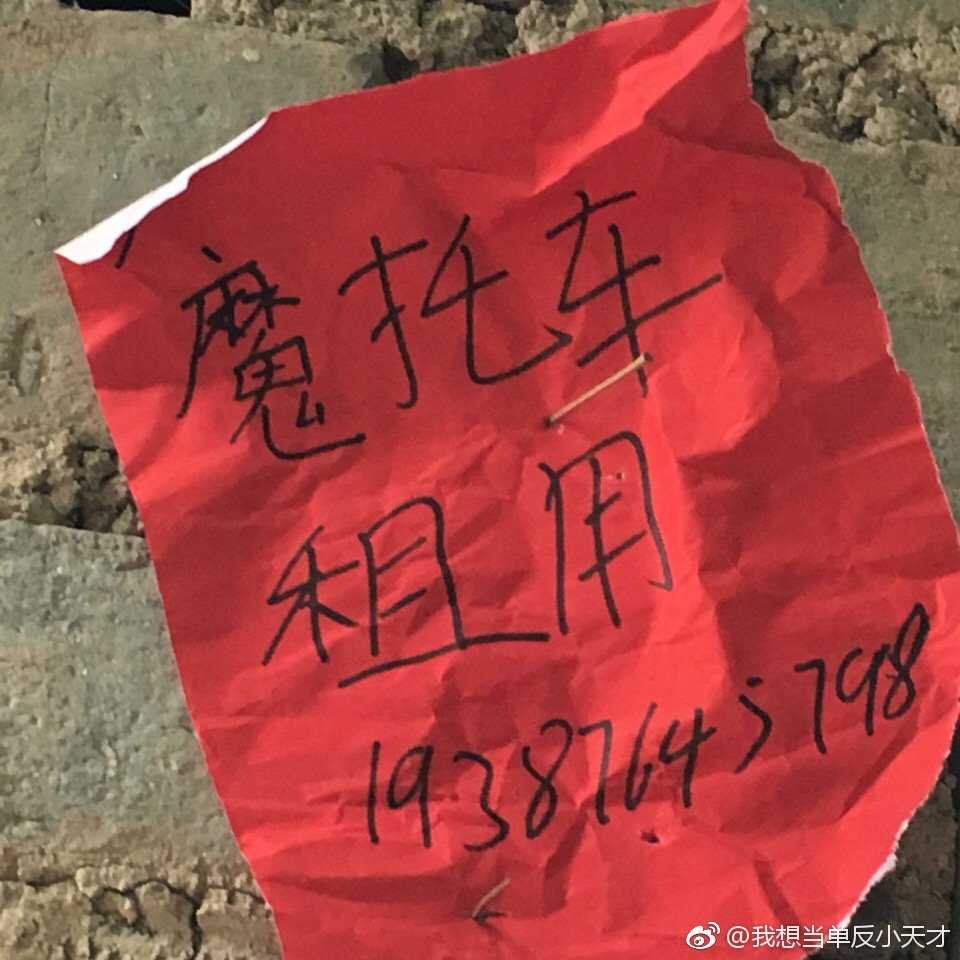 魔托车
租用
19387645798
@我想当单反小天才